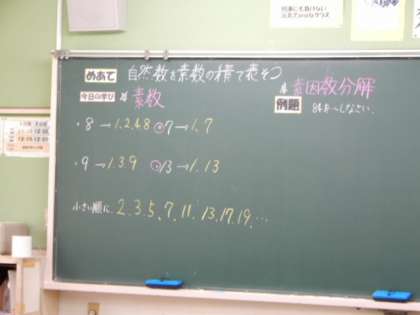 めあて 自然数を素数の積で表そう
今日の学び
素数
・8 → 1.2.4.8 7→1.7
・9 → 1.3.9 13→1.13
小さい順に 2.3.5.7.11.13.17.19.…
素因数分解
例題 84を〜しなさい.